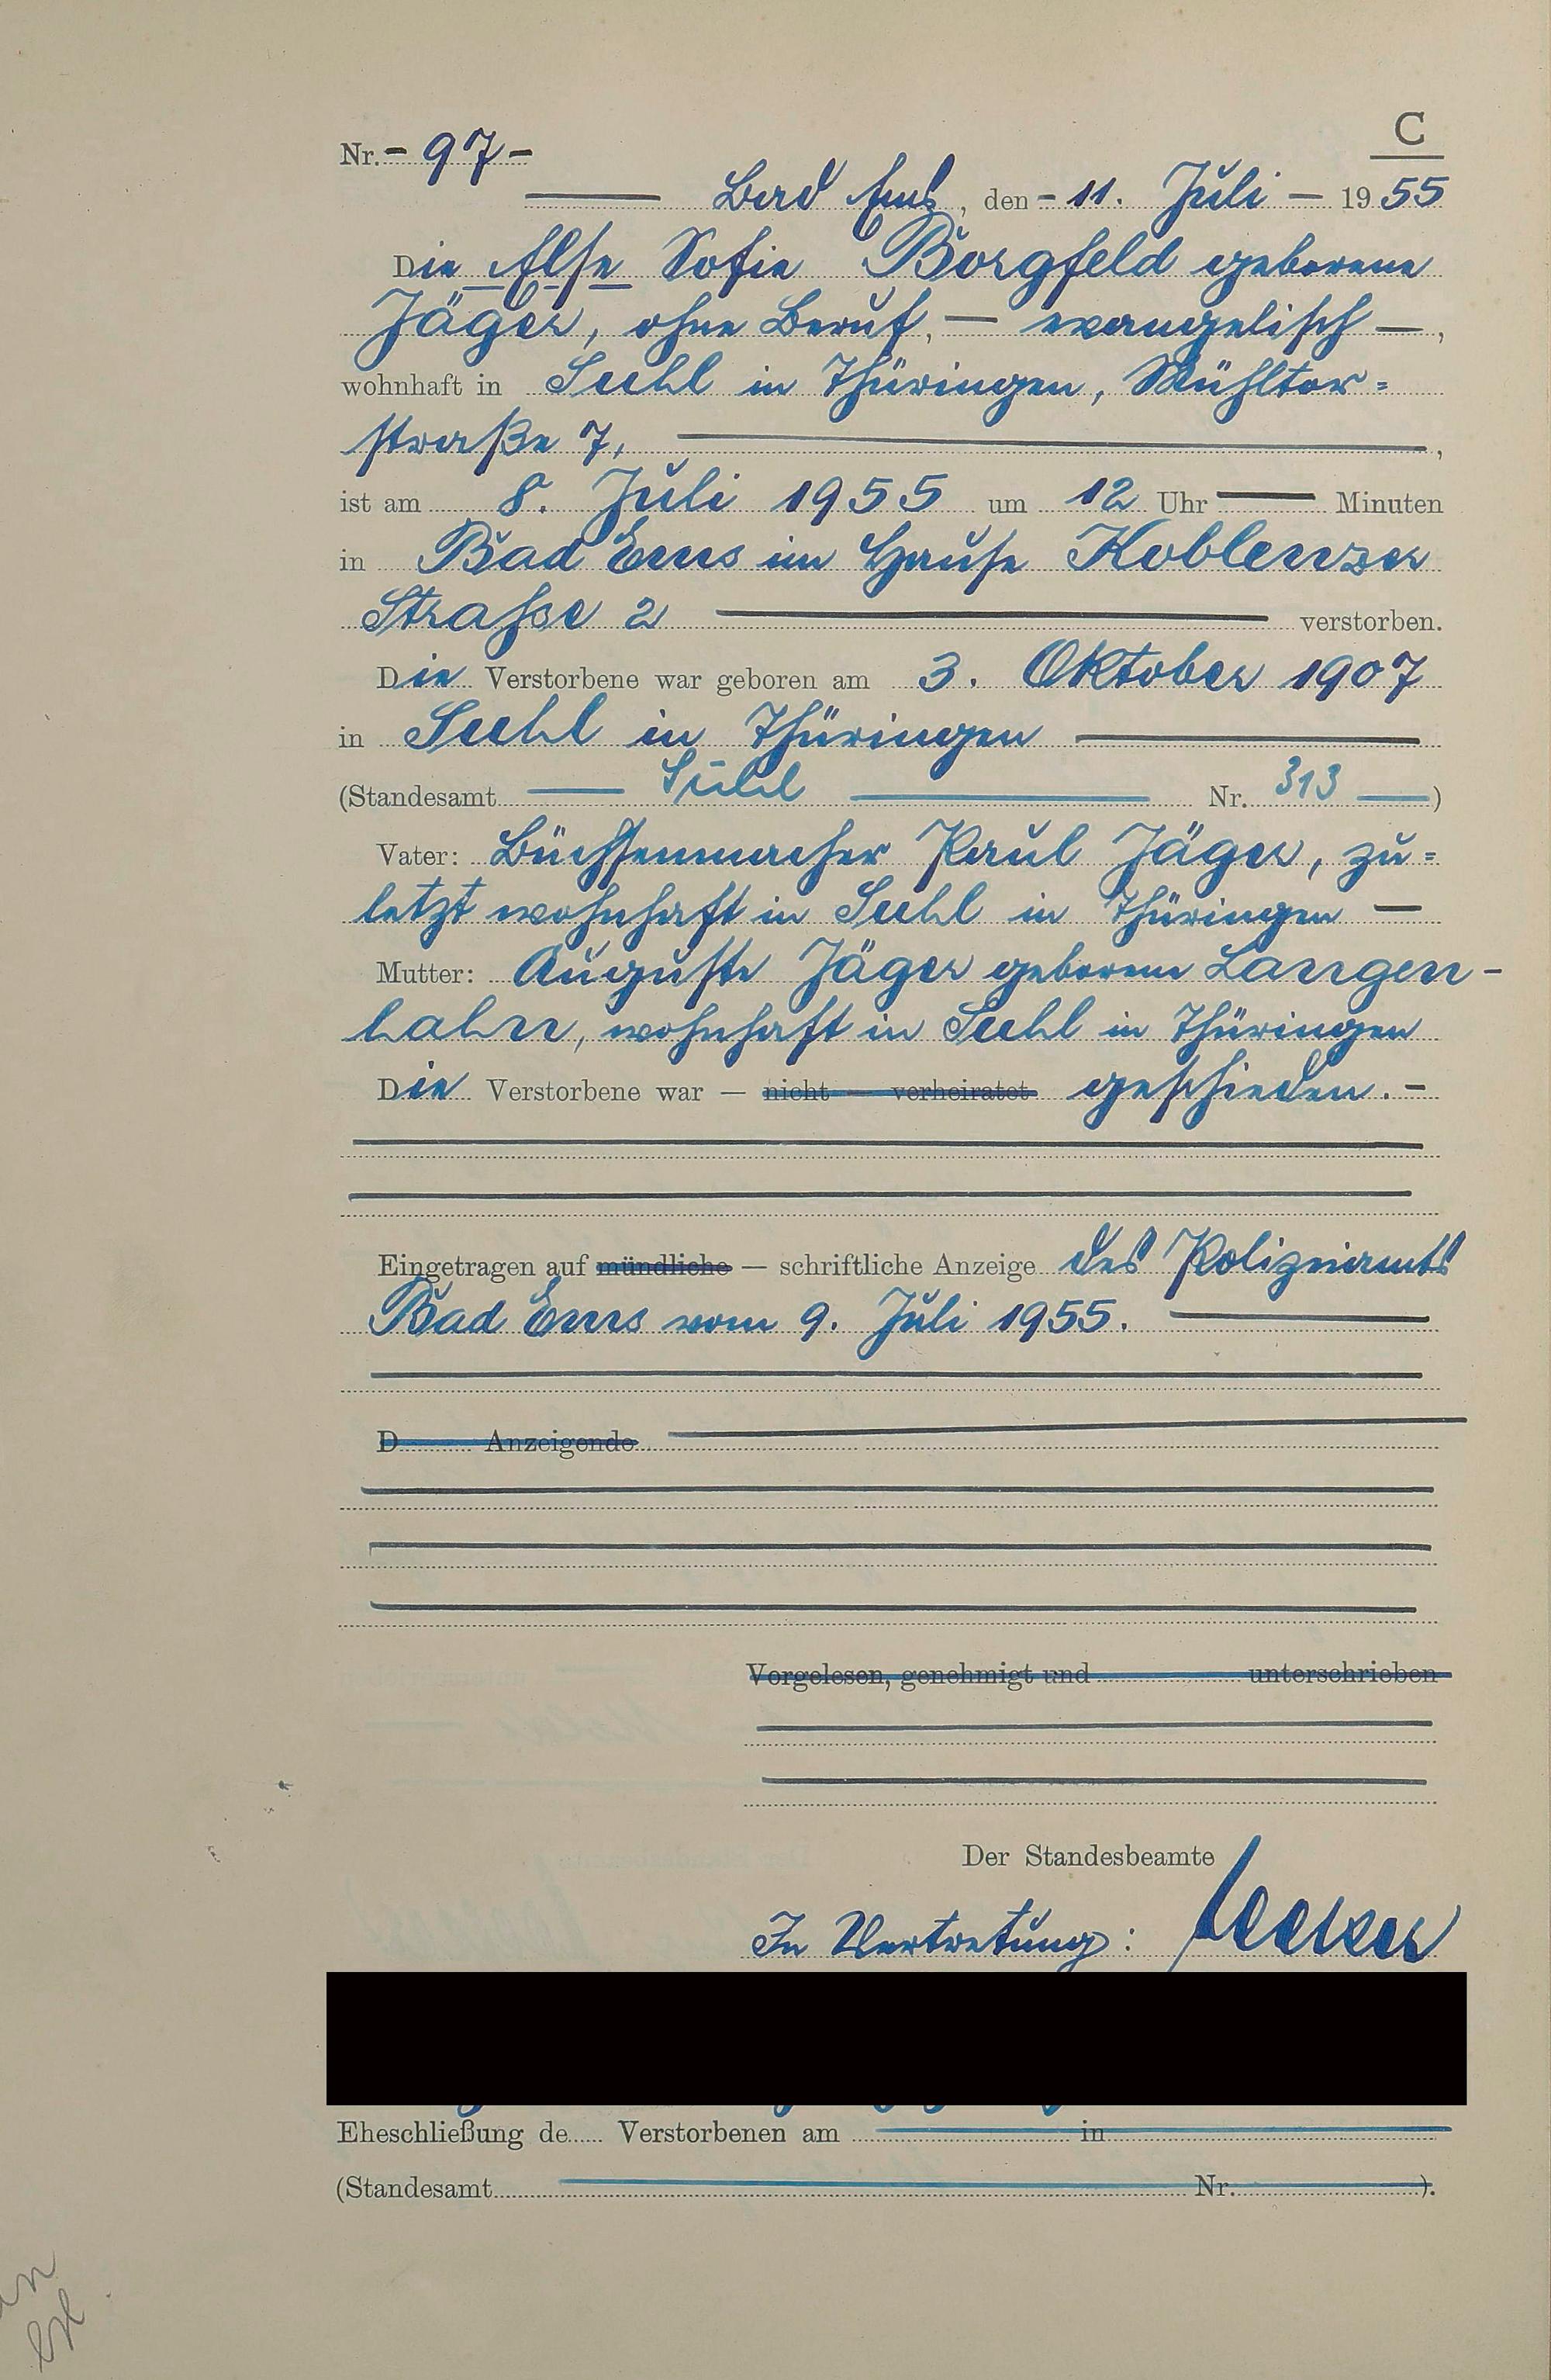 C
Nr. - 97 -
Bad Ems, den - 11. Juli - 1955
Die Else Sofie Borgfeld geborene
Jäger, ohne Beruf, — evangelisch —,
wohnhaft in Suhl in Thüringen, Mühltor=
straße 7,
ist am 8. Juli 1955 um 12 Uhr — Minuten
in Bad Ems im Hause Koblenzer
Strasse 2 verstorben.
Die Verstorbene war geboren am 3. Oktober 1907
in Suhl in Thüringen
(Standesamt Suhl Nr. 313)
Vater: Büchsenmacher Paul Jäger, zu=
letzt wohnhaft in Suhl in Thüringen —
Mutter: Auguste Jäger geborene Langen-
hahn, wohnhaft in Suhl in Thüringen
Die Verstorbene war — nicht — verheiratet geschieden. -
Eingetragen auf mündliche — schriftliche Anzeige des Polizeiamts
Bad Ems vom 9. Juli 1955.
D Anzeigende
Vorgelesen, genehmigt und unterschrieben
Der Standesbeamte
In Vertretung:
Eheschließung de Verstorbenen am in
(Standesamt Nr. ).